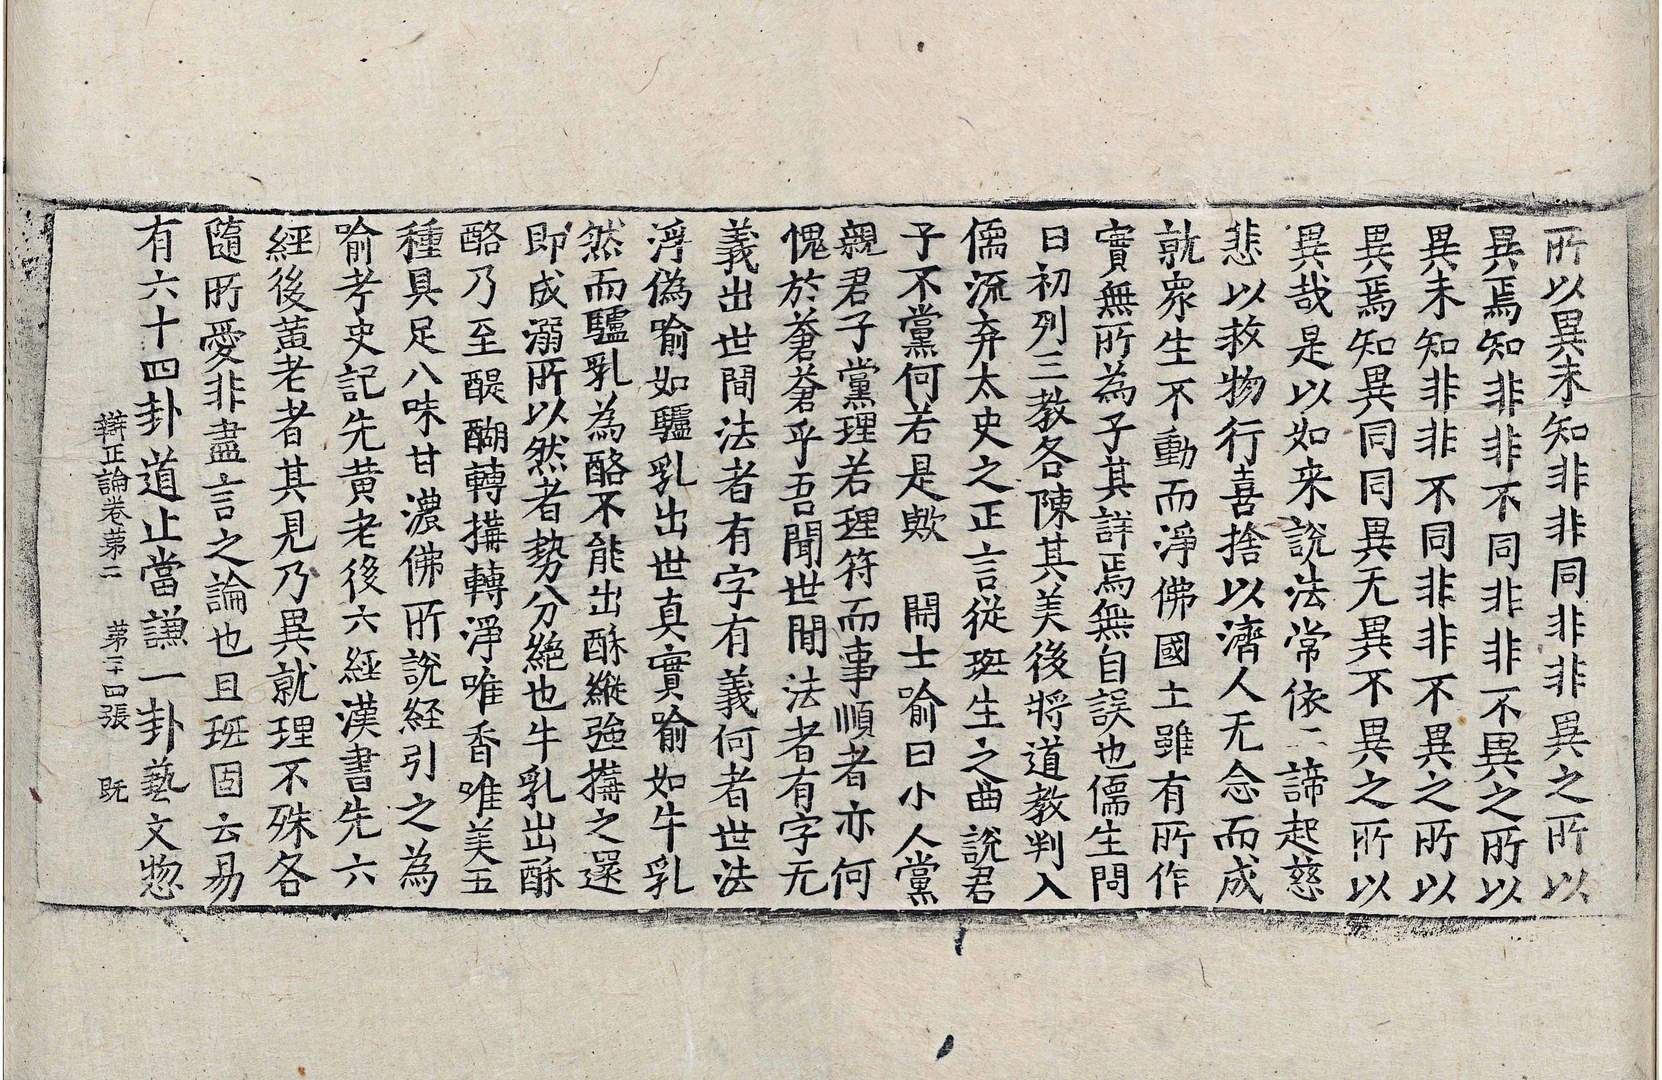 所以異未知非非同非非異之所以
異焉知非非不同非非不異之所以
異未知非非不同非非不異之所以
異焉知異同同異无異不異之所以
異哉是以如来說法常依二諦起慈
悲以救物行喜捨以濟人无念而成
就衆生不動而淨佛國土雖有所作
實無所為子其詳焉無自誤也儒生問
曰初列三教各陳其美後將道教判入
儒流弃太史之正言從班生之曲說君
子不黨何若是歟　開士喻曰小人黨
親君子黨理若理符而事順者亦何
愧於蒼蒼乎吾聞世間法者有字无
義出世間法者有字有義何者世法
浮偽喻如驢乳出世真實喻如牛乳
然而驢乳為酪不能出酥縱強搆之還
即成溺所以然者勢分絶也牛乳出酥
酪乃至醍醐轉搆轉淨唯香唯美五
種具足八味甘濃佛所說経引之為
喻考史記先黄老後六經漢書先六
經後黃老者其見乃異就理不殊各
隨所愛非盡言之論也且班固云易
有六十四卦道止當謙一卦藝文惣
辯正論卷苐二　苐二十四張　既